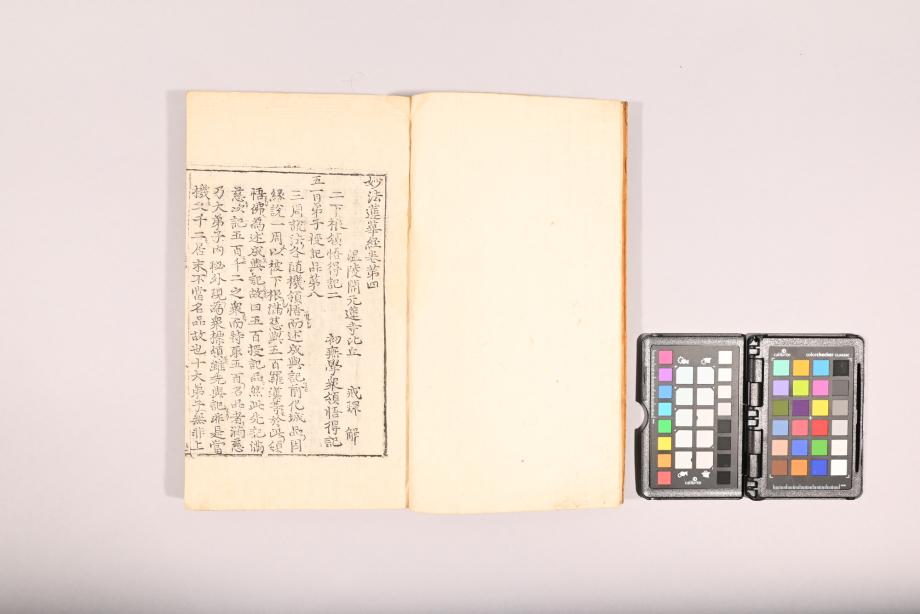 妙法蓮華経卷第四
溫陵開元蓮寺比丘 戒環 解
二下根領悟得記二 初無學衆領悟得記
五百弟子授記品第八
三周說法各隨機領悟而述成與記前化城品因
緣說一周以被下根滿慈與五百羅漢等於此領
悟佛為述成與記故曰五百授記品然此先記滿
慈次記五百千二之衆而特乘五百名品者滿慈
乃大弟子內秘外現為衆標領雖先與記非是當
機之千二居末不當名品故也十大弟子無非上
calibrite
colorchecker CLASSIC
calibrite